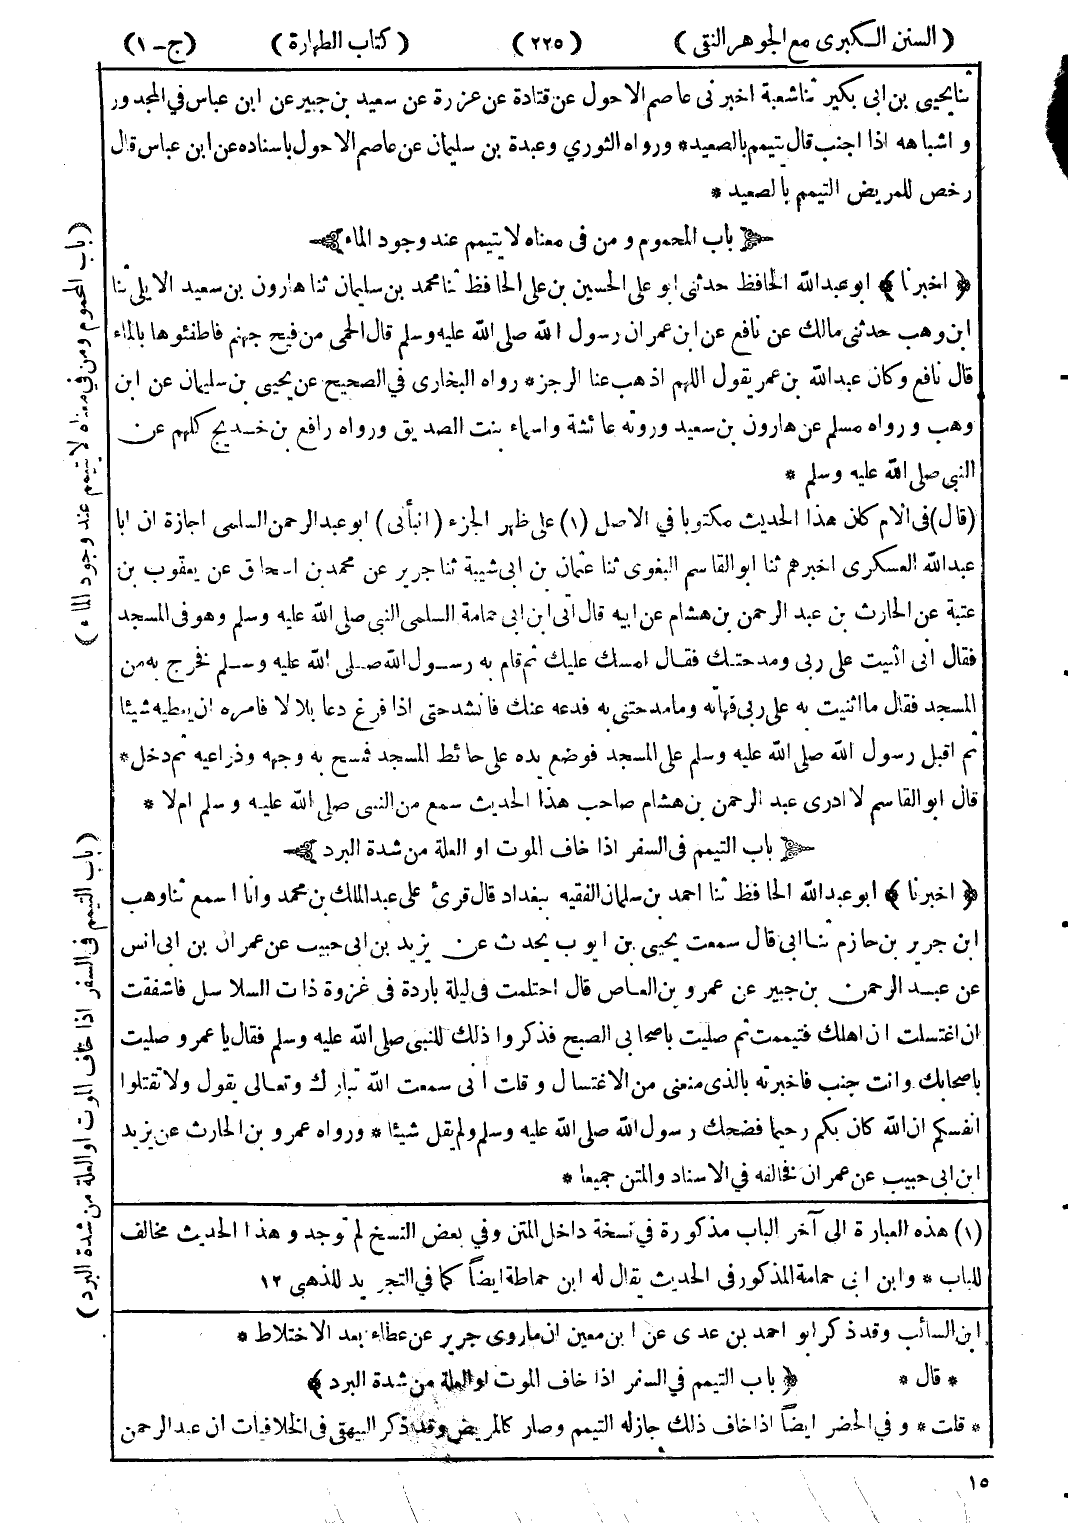 (السنن الكبرى مع الجوهر النقى) (٢٢٥) (كتاب الطهارة) (ج-١)
ثنا يحيى بن ابى بكير ثنا شعبة اخبرنى عاصم الاحول عن قتادة عن عزرة عن سعيد بن جبير عن ابن عباس في المجدور
و اشباهه اذا اجنب قال يتيمم بالصعيد * ورواه الثوري وعبدة بن سليمان عن عاصم الاحول باسناده عن ابن عباس قال
رخص للمريض التيمم بالصعيد *
باب المحموم و من فى معناه لا يتيمم عند وجود الماء
﴿ اخبرنا ﴾ ابو عبدالله الحافظ حدثنى ابو على الحسين بن على الحافظ ثنا محمد بن سليمان ثنا هارون بن سعيد الايلى ثنا
ابن وهب حدثنى مالك عن نافع عن ابن عمر ان رسول الله صلى الله عليه وسلم قال الحمى من فيح جهنم فاطفئوها بالماء
قال نافع وكان عبدالله بن عمر يقول اللهم اذهب عنا الرجز * رواه البخارى في الصحيح عن يحيى بن سليمان عن ابن
وهب و رواه مسلم عن هارون بن سعيد وروته عائشة واسماء بنت الصديق ورواه رافع بن خديج كلهم عن
النبى صلى الله عليه وسلم *
(قال) فى الام كان هذا الحديث مكتوبا في الاصل (١) على ظهر الجزء (انبأنى) ابو عبدالرحمن السلمى اجازة ان ابا
عبدالله العسكرى اخبرهم ثنا ابو القاسم البغوى ثنا عثمان بن ابى شيبة ثنا جرير عن محمد بن اسحاق عن يعقوب بن
عتبة عن الحارث بن عبد الرحمن بن هشام عن ابيه قال اتى ابن ابى حمامة السلمى النبى صلى الله عليه وسلم وهو فى المسجد
فقال انى اثنيت على ربى ومدحتك فقال امسك عليك ثم قام به رسول الله صلى الله عليه وسلم فخرج به من
المسجد فقال ما اثنيت به على ربى فهاته وما مدحتنى به فدعه عنك فانشد حتى اذا فرغ دعا بلالا فامره ان يعطيه شيئا
ثم اقبل رسول الله صلى الله عليه وسلم على المسجد فوضع يده على حائط المسجد فمسح به وجهه وذراعيه ثم دخل *
قال ابو القاسم لا ادرى عبد الرحمن بن هشام صاحب هذا الحديث سمع من النبى صلى الله عليه وسلم ام لا *
باب التيمم فى السفر اذا خاف الموت او العلة من شدة البرد
﴿ اخبرنا ﴾ ابو عبدالله الحافظ ثنا احمد بن سلمان الفقيه ببغداد قال قرئ على عبدالملك بن محمد وانا اسمع ثنا وهب
ابن جرير بن حازم ثنا ابى قال سمعت يحيى بن ايوب يحدث عن يزيد بن ابى حبيب عن عمران بن ابى انس
عن عبد الرحمن بن جبير عن عمرو بن العاص قال احتلمت فى ليلة باردة فى غزوة ذات السلاسل فاشفقت
ان اغتسلت ان اهلك فتيممت ثم صليت باصحابى الصبح فذكروا ذلك للنبى صلى الله عليه وسلم فقال يا عمرو صليت
باصحابك وانت جنب فاخبرته بالذى منعنى من الاغتسال و قلت انى سمعت الله تبارك وتعالى يقول ولا تقتلوا
انفسكم ان الله كان بكم رحيما فضحك رسول الله صلى الله عليه وسلم ولم يقل شيئا * ورواه عمرو بن الحارث عن يزيد
ابن ابى حبيب عن عمران فخالفه في الاسناد والمتن جميعا *
(١) هذه العبارة الى آخر الباب مذكورة في نسخة داخل المتن وفي بعض النسخ لم توجد وهذا الحديث مخالف
للباب * وابن ابى حمامة المذكور فى الحديث يقال له ابن حماطة ايضاً كما في التجريد للذهبى ١٢
ابن السائب وقد ذكر ابو احمد بن عدى عن ابن معين ان ماروى جرير عن عطاء بعد الاختلاط *
* قال * ﴿ باب التيمم في السفر اذا خاف الموت او العلة من شدة البرد ﴾
* قلت * و في الحضر ايضاً اذا خاف ذلك جاز له التيمم وصار كالمريض وقد ذكر البيهقى فى الخلافيات ان عبد الرحمن
١٥
(باب المحموم ومن في معناه لا يتيمم عند وجود الماء)
(باب التيمم فى السفر اذا خاف الموت او العلة من شدة البرد)